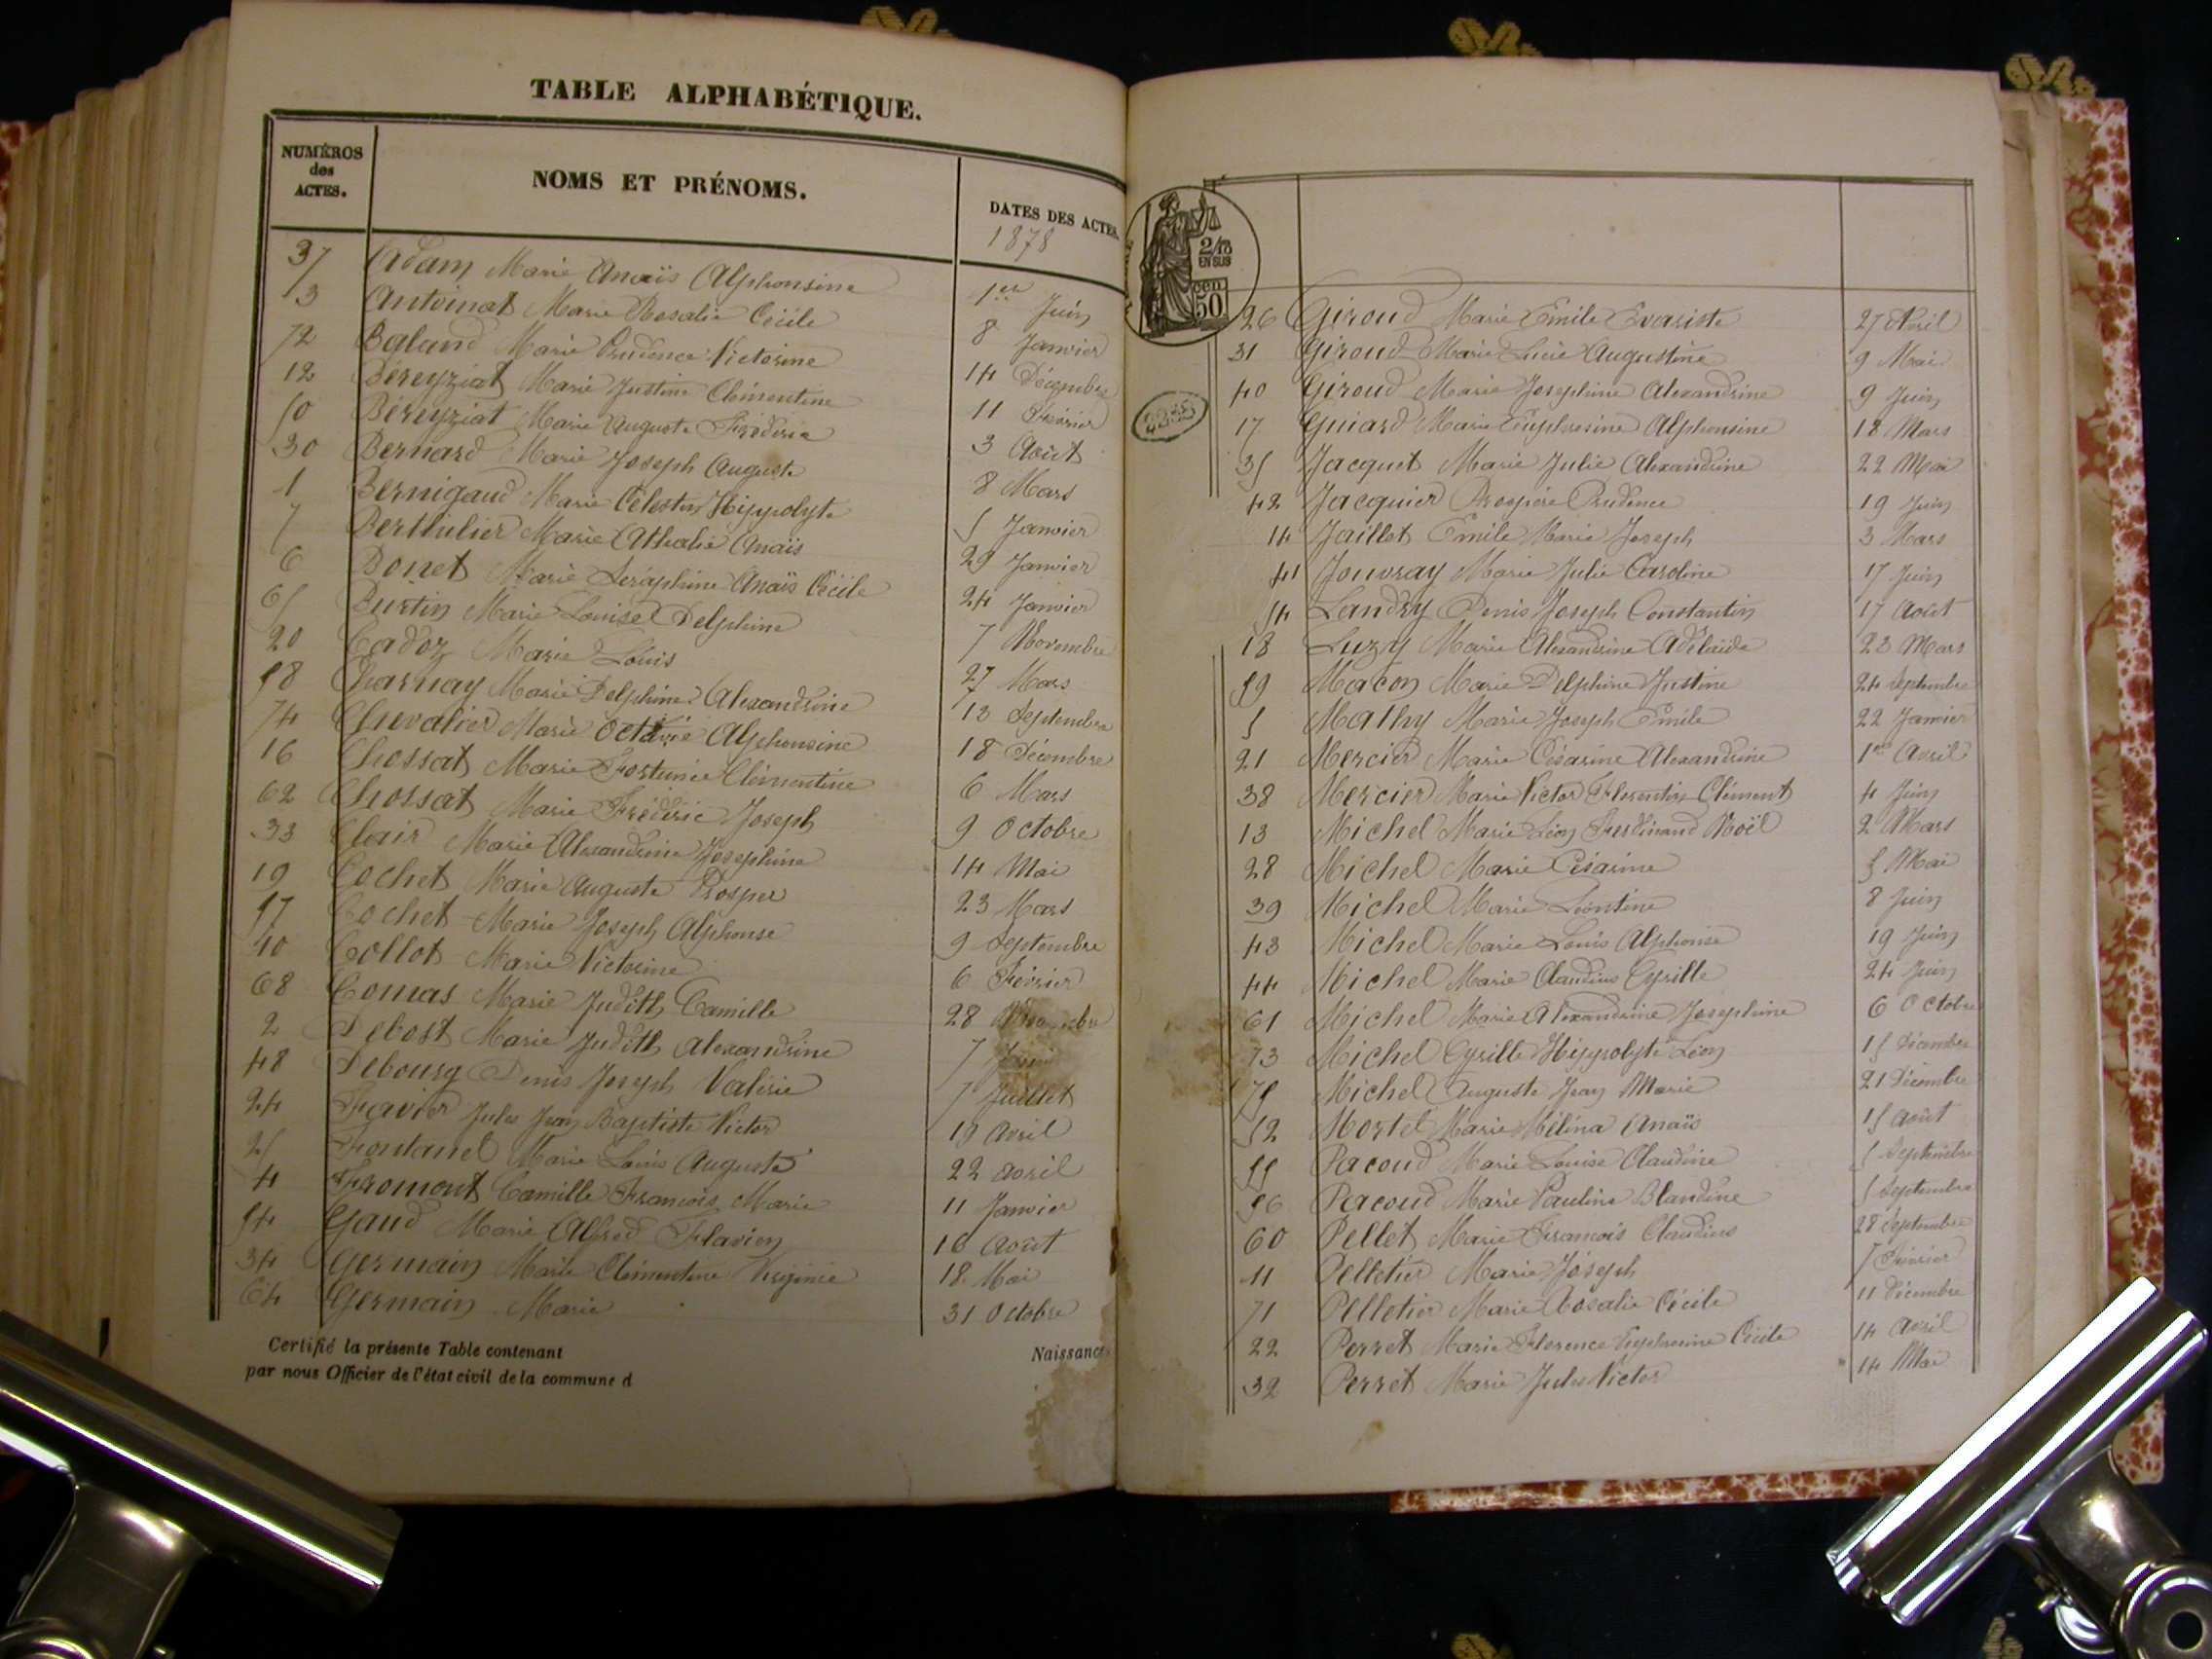 TABLE ALPHABÉTIQUE.
NUMÉROS des ACTES.
NOMS ET PRÉNOMS.
DATES DES ACTES.
1878
37 Adam Marie Anaïs Alphonsine 1er Juin
3 Antoinat Marie Rosalie Cécile 8 Janvier
72 Baland Marie Prudence Victorine 14 Décembre
12 Béreyziat Marie Justine Clémentine 11 Février
50 Béreyziat Marie Auguste Frédéric 3 Août
30 Bernard Marie Joseph Auguste 8 Mars
1 Bernigaud Marie Célestin Hippolyte 5 Janvier
7 Berthelier Marie Athalie Anaïs 29 Janvier
6 Bonet Marie Séraphine Anaïs Cécile 24 Janvier
65 Burtin Marie Louise Delphine 7 Novembre
20 Cadoz Marie Louis 27 Mars
58 Charnay Marie Delphine Alexandrine 13 Septembre
74 Chevalier Marie Octavie Alphonsine 18 Décembre
16 Chossat Marie Fortunée Clémentine 6 Mars
62 Chossat Marie Frédéric Joseph 9 Octobre
33 Clair Marie Alexandrine Josephine 14 Mai
19 Cochet Marie Auguste Prosper 23 Mars
57 Cochet Marie Joseph Alphonse 9 Septembre
10 Collot Marie Victorine 6 Février
68 Comas Marie Judith Camille 28 Novembre
2 Debost Marie Judith Alexandrine 7
48 Debourg Denis Joseph Valérie 7 Juillet
24 Favier Jules Jean Baptiste Victor 19 Avril
25 Fontanel Marie Louis Auguste 22 Avril
4 Fromont Camille François Marie 11 Janvier
54 Gaud Marie Alfred Flavien 16 Août
34 Germain Marie Clémentine Virginie 18 Mai
64 Germain Marie 31 Octobre
Certifié la présente Table contenant Naissances
par nous Officier de l'état civil de la commune d
2/10
EN SUS
50 cen
26 Giroud Marie Emile Evariste 27 Avril
31 Giroud Marie Lucie Augustine 9 Mai
40 Giroud Marie Josephine Alexandrine 9 Juin
17 Guiard Marie Euphrosine Alphonsine 18 Mars
35 Jacquet Marie Julie Alexandrine 22 Mai
42 Jacquier Prospère Prudence 19 Juin
14 Jaillet Emile Marie Joseph 3 Mars
41 Jouvray Marie Julie Caroline 17 Juin
54 Landry Denis Joseph Constantin 17 Août
18 Luzy Marie Alexandrine Adélaïde 23 Mars
59 Macon Marie Delphine Justine 24 Septembre
5 Mathy Marie Joseph Emile 22 Janvier
21 Mercier Marie Césarine Alexandrine 1er Avril
38 Mercier Marie Victor Florentin Clément 4 Juin
13 Michel Marie Léon Ferdinand Noël 2 Mars
28 Michel Marie Césarine 5 Mai
39 Michel Marie Léontine 8 Juin
43 Michel Marie Louis Alphonse 19 Juin
44 Michel Marie Claudius Cyrille 24 Juin
61 Michel Marie Alexandrine Josephine 6 Octobre
73 Michel Cyrille Hippolyte Léon 15 Décembre
75 Michel Auguste Jean Marie 21 Décembre
52 Mortel Marie Mélina Anaïs 15 Août
55 Pacoud Marie Louise Claudine 5 Septembre
56 Pacoud Marie Pauline Blandine 5 Septembre
60 Pellet Marie François Claudius 28 Septembre
11 Pelletier Marie Joseph 7 Février
71 Pelletier Marie Rosalie Cécile 11 Décembre
22 Perret Marie Florence Euphrosine Cécile 14 Avril
32 Perret Marie Jules Victor 14 Mai